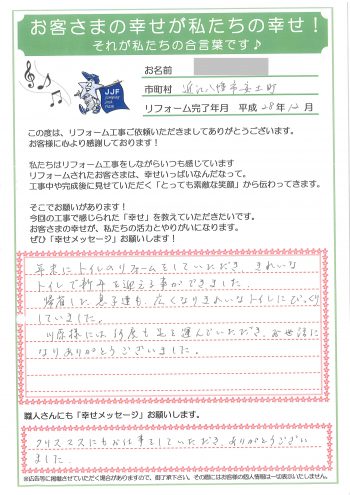 お客さまの幸せが私たちの幸せ！
それが私たちの合言葉です♪
JJF
お名前
市町村 近江八幡市安土町
リフォーム完了年月 平成 28年 12月
この度は、リフォーム工事ご依頼いただきましてありがとうございます。
お客様に心より感謝しております！
私たちはリフォーム工事をしながらいつも感じています
リフォームされたお客さまは、幸せいっぱいなんだなって。
工事中や完成後に見せていただく「とっても素敵な笑顔」から伝わってきます。
そこでお願いがあります！
今回の工事で感じられた「幸せ」を教えていただきたいです。
お客さまの幸せが、私たちの活力とやりがいになります。
ぜひ「幸せメッセージ」お願いします！
年末にトイレのリフォームをしていただき、きれいな
トイレで新年を迎える事ができました。
帰省した息子達も、広くなりきれいなトイレにびっくり
していました。
川原様には何度も足を運んでいただき、お世話に
なりありがとうございました。
職人さんにも「幸せメッセージ」お願いします。
クリスマスにもお仕事をしていただき、ありがとうござい
ました。
※広告等に掲載させていただく場合がありますので、御了承下さい。その際にはお客様の個人情報は一切表示いたしません。